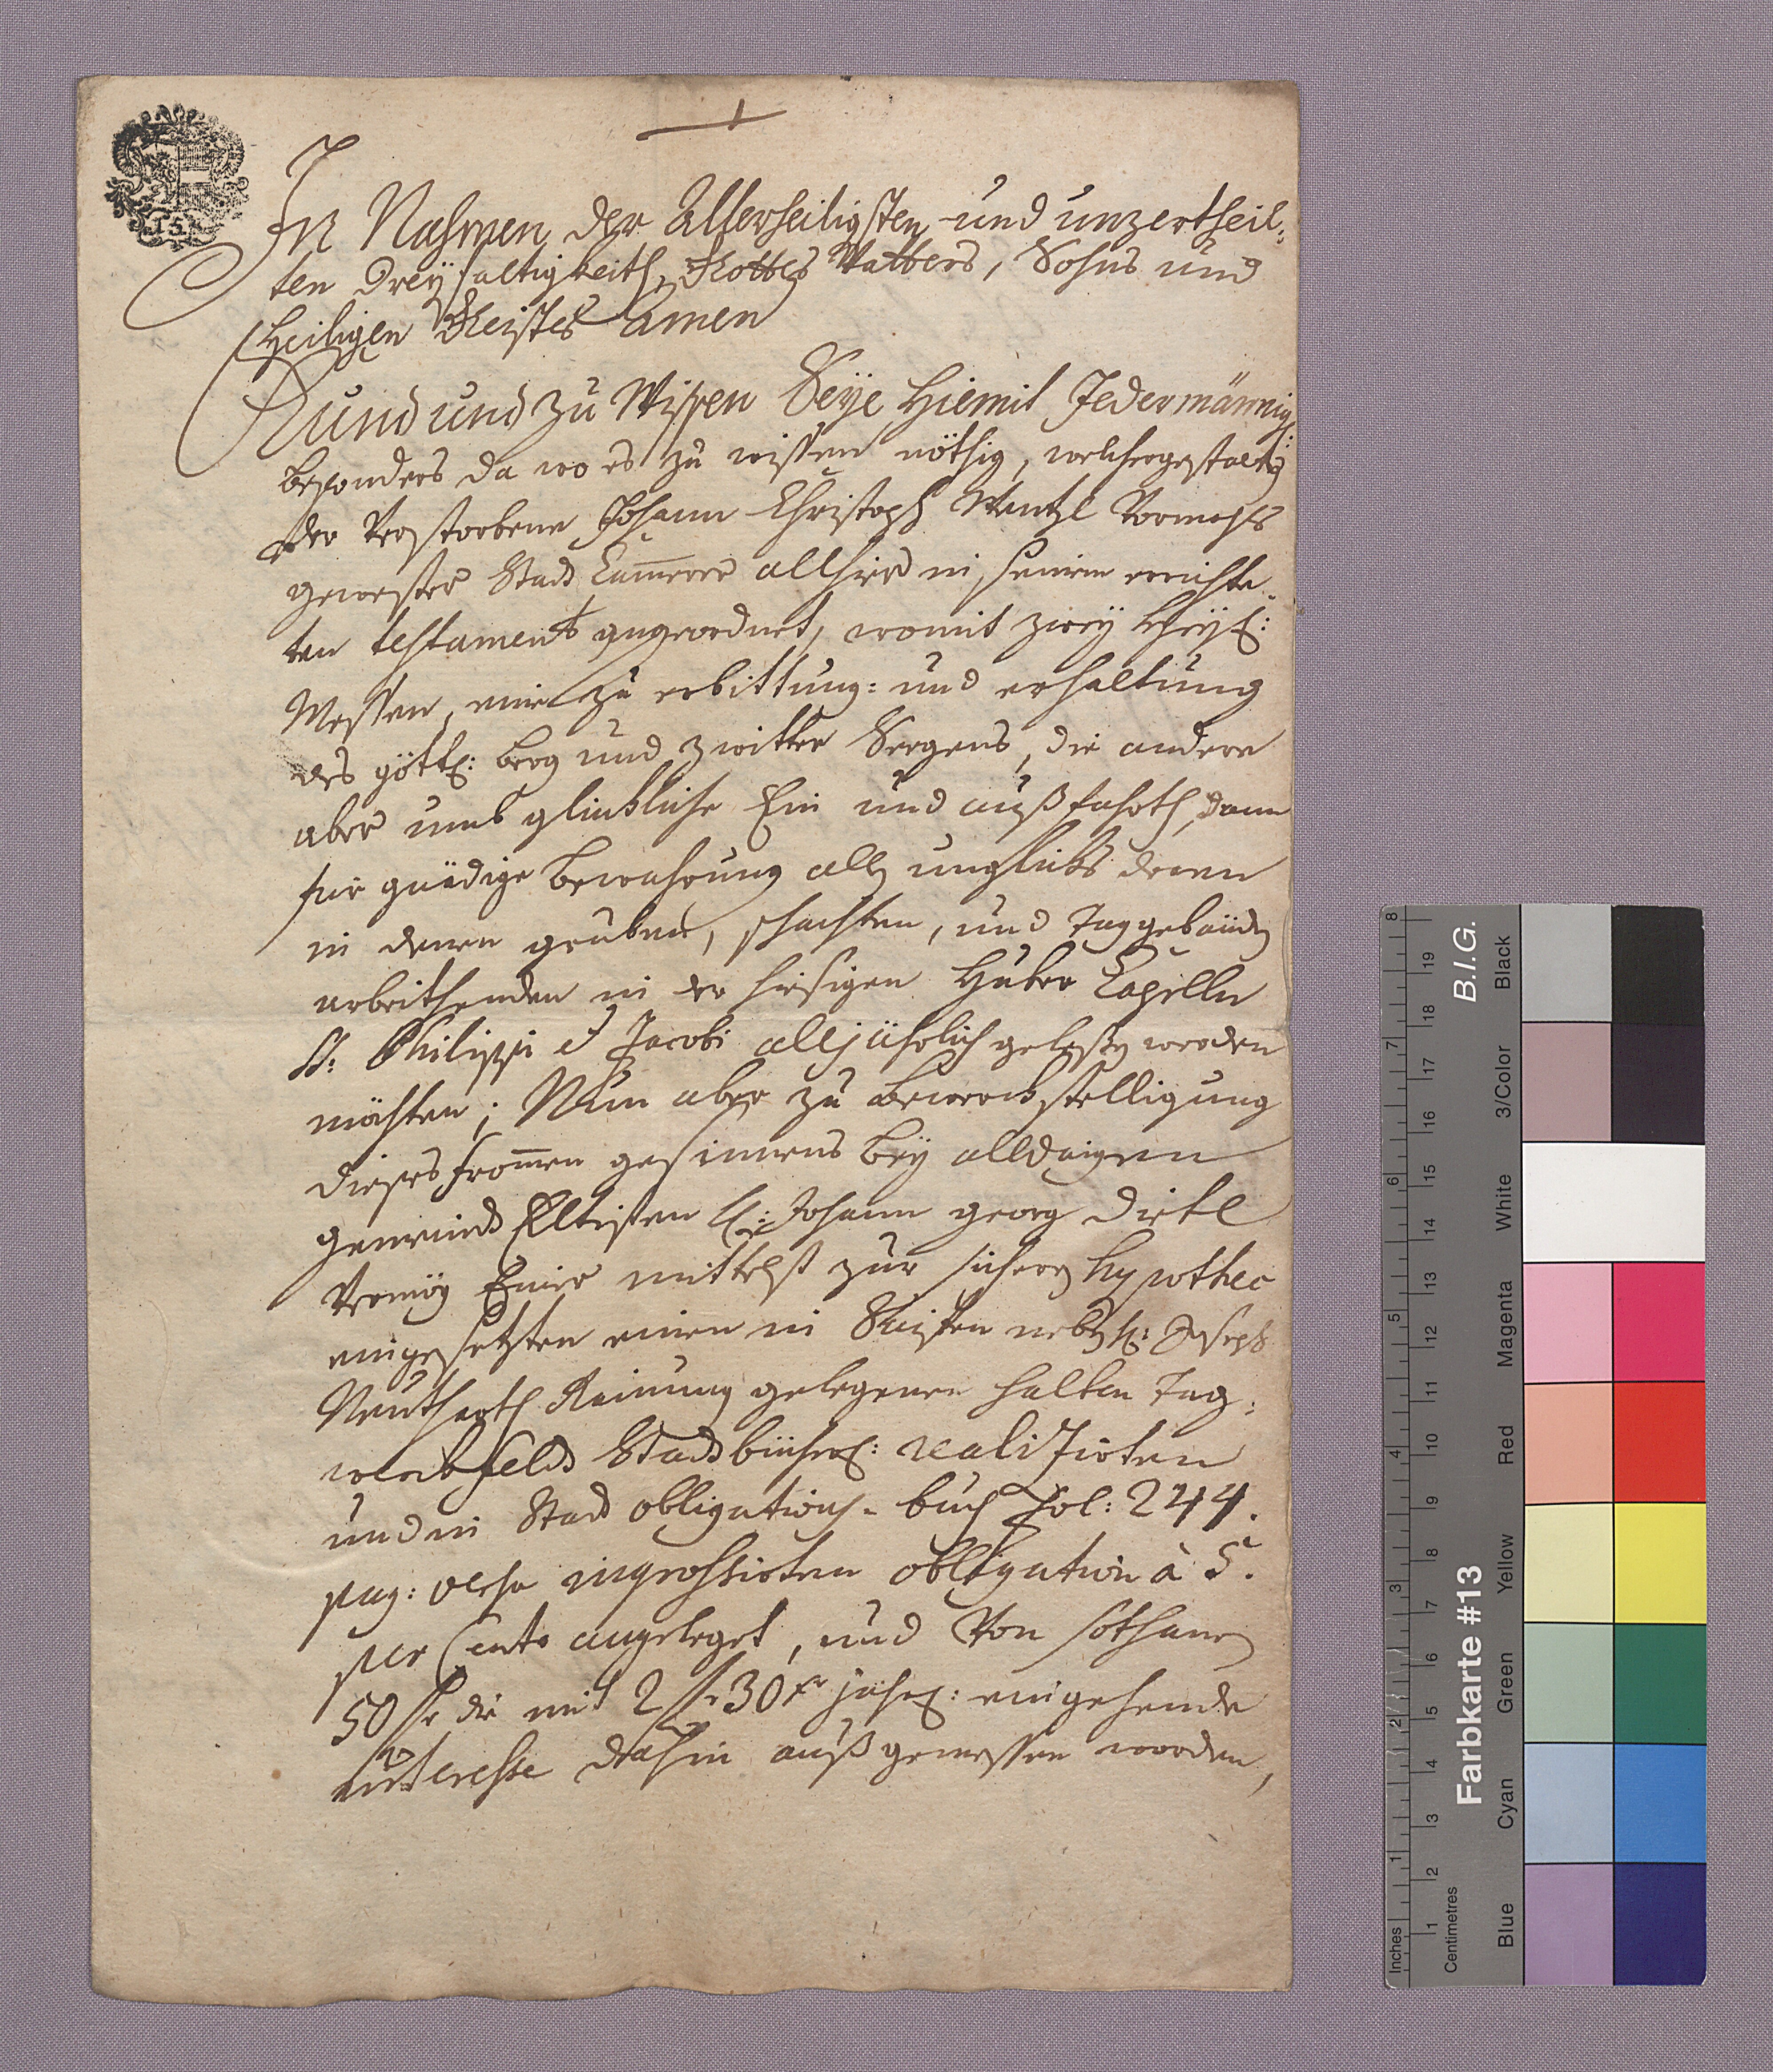 In Nahmen der Allerheiligsten und unzertheil=
ten Dreyfaltigkeith, Gottes Vatters, Sohns und
Heiligen Geistes Amen
Kund und zu Wissen Seye Hiemit Jedermännig
besonders da wo es zu wissen nöthig, welchergestalten
der Verstorbene Johann Christoph Wentzl Vormahls
gewester Stadt Cammerer allhier in seinem errichte=
ten testament angeordnet, womit zwey Heyl:
Messen, eine zu erbittung= und erhaltung
des göttl: berg und zwitter Seegens, die andere
aber umb glückliche Ein und außfahrth, dann
für gnädige bewahrung alles unglücks deren
in denen gruben, schachten, und Taggebäuden
arbeithenden in der hiesigen Huber Capelln
SS: Philippi et Jacobi alljährlich gelesen werden
möchten; Nun aber zu bewerckstelligung
dieses frommen gesinnens bey alldaigen
gemeind Eltisten H: Johann georg Dietl
Vermög Einer mittelst zur sichern hypothec
eingesetzten einen in neben H: Joseph
Reinung gelegenen halben Tag=
werkfelds Stadtbücherl: realisirten
und in Stadt obligations=buch Fol: 244.
pag: versa ingrossirten obligation à 5.
per Cento angeleget, und Von sothanen
50 fl die mit 2 fl 30 xr jährl: eingehende
interesse dahin außgemessen worden,
Inches
Centimetres
1 2 3 4 5 6 7 8
1 2 3 4 5 6 7 8 9 10 11 12 13 14 15 16 17 18 19
Farbkarte #13
B.I.G.
Blue
Cyan
Green
Yellow
Red
Magenta
White
3/Color
Black